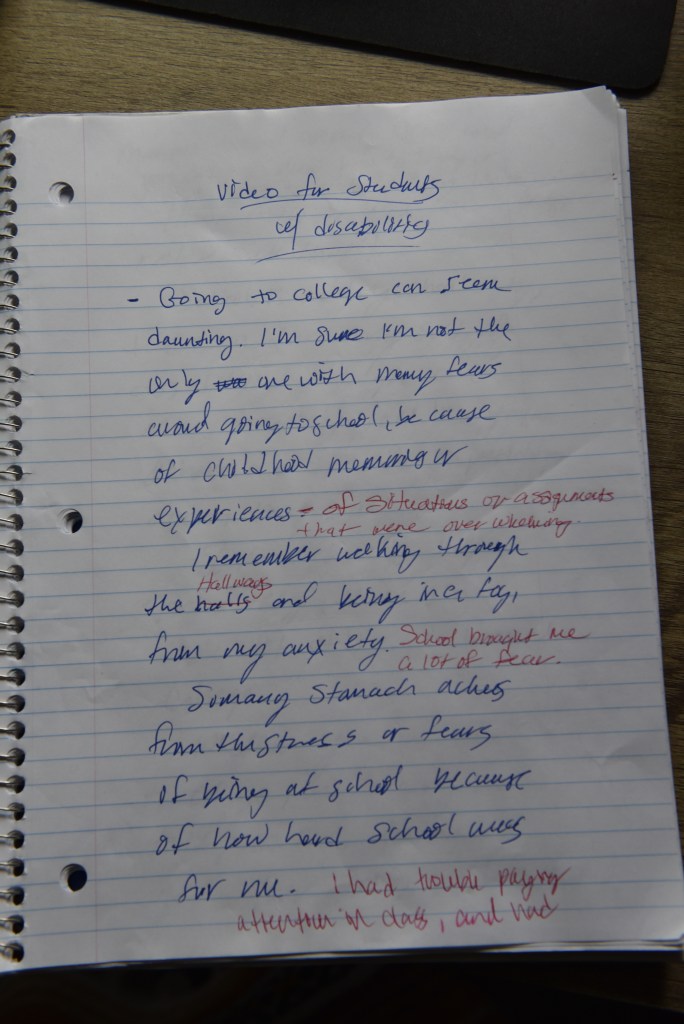 Video for Students
w/ disabilities
- Going to college can seem
daunting. I'm sure I'm not the
only one with many fears
around going to school, because
of childhood memories or
experiences - of situations or assignments
that were overwhelming.
I remember walking through
Hallways
the halls and being in a fog,
from my anxiety. School brought me
a lot of fear.
So many stomach aches
from the stress or fears
of being at school because
of how hard school was
for me. I had trouble paying
attention in class, and had